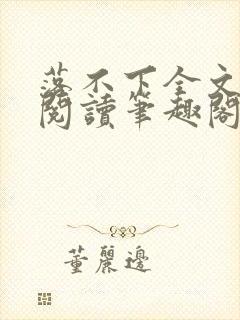 落不下全文
閱讀筆趣閣
董麗邊